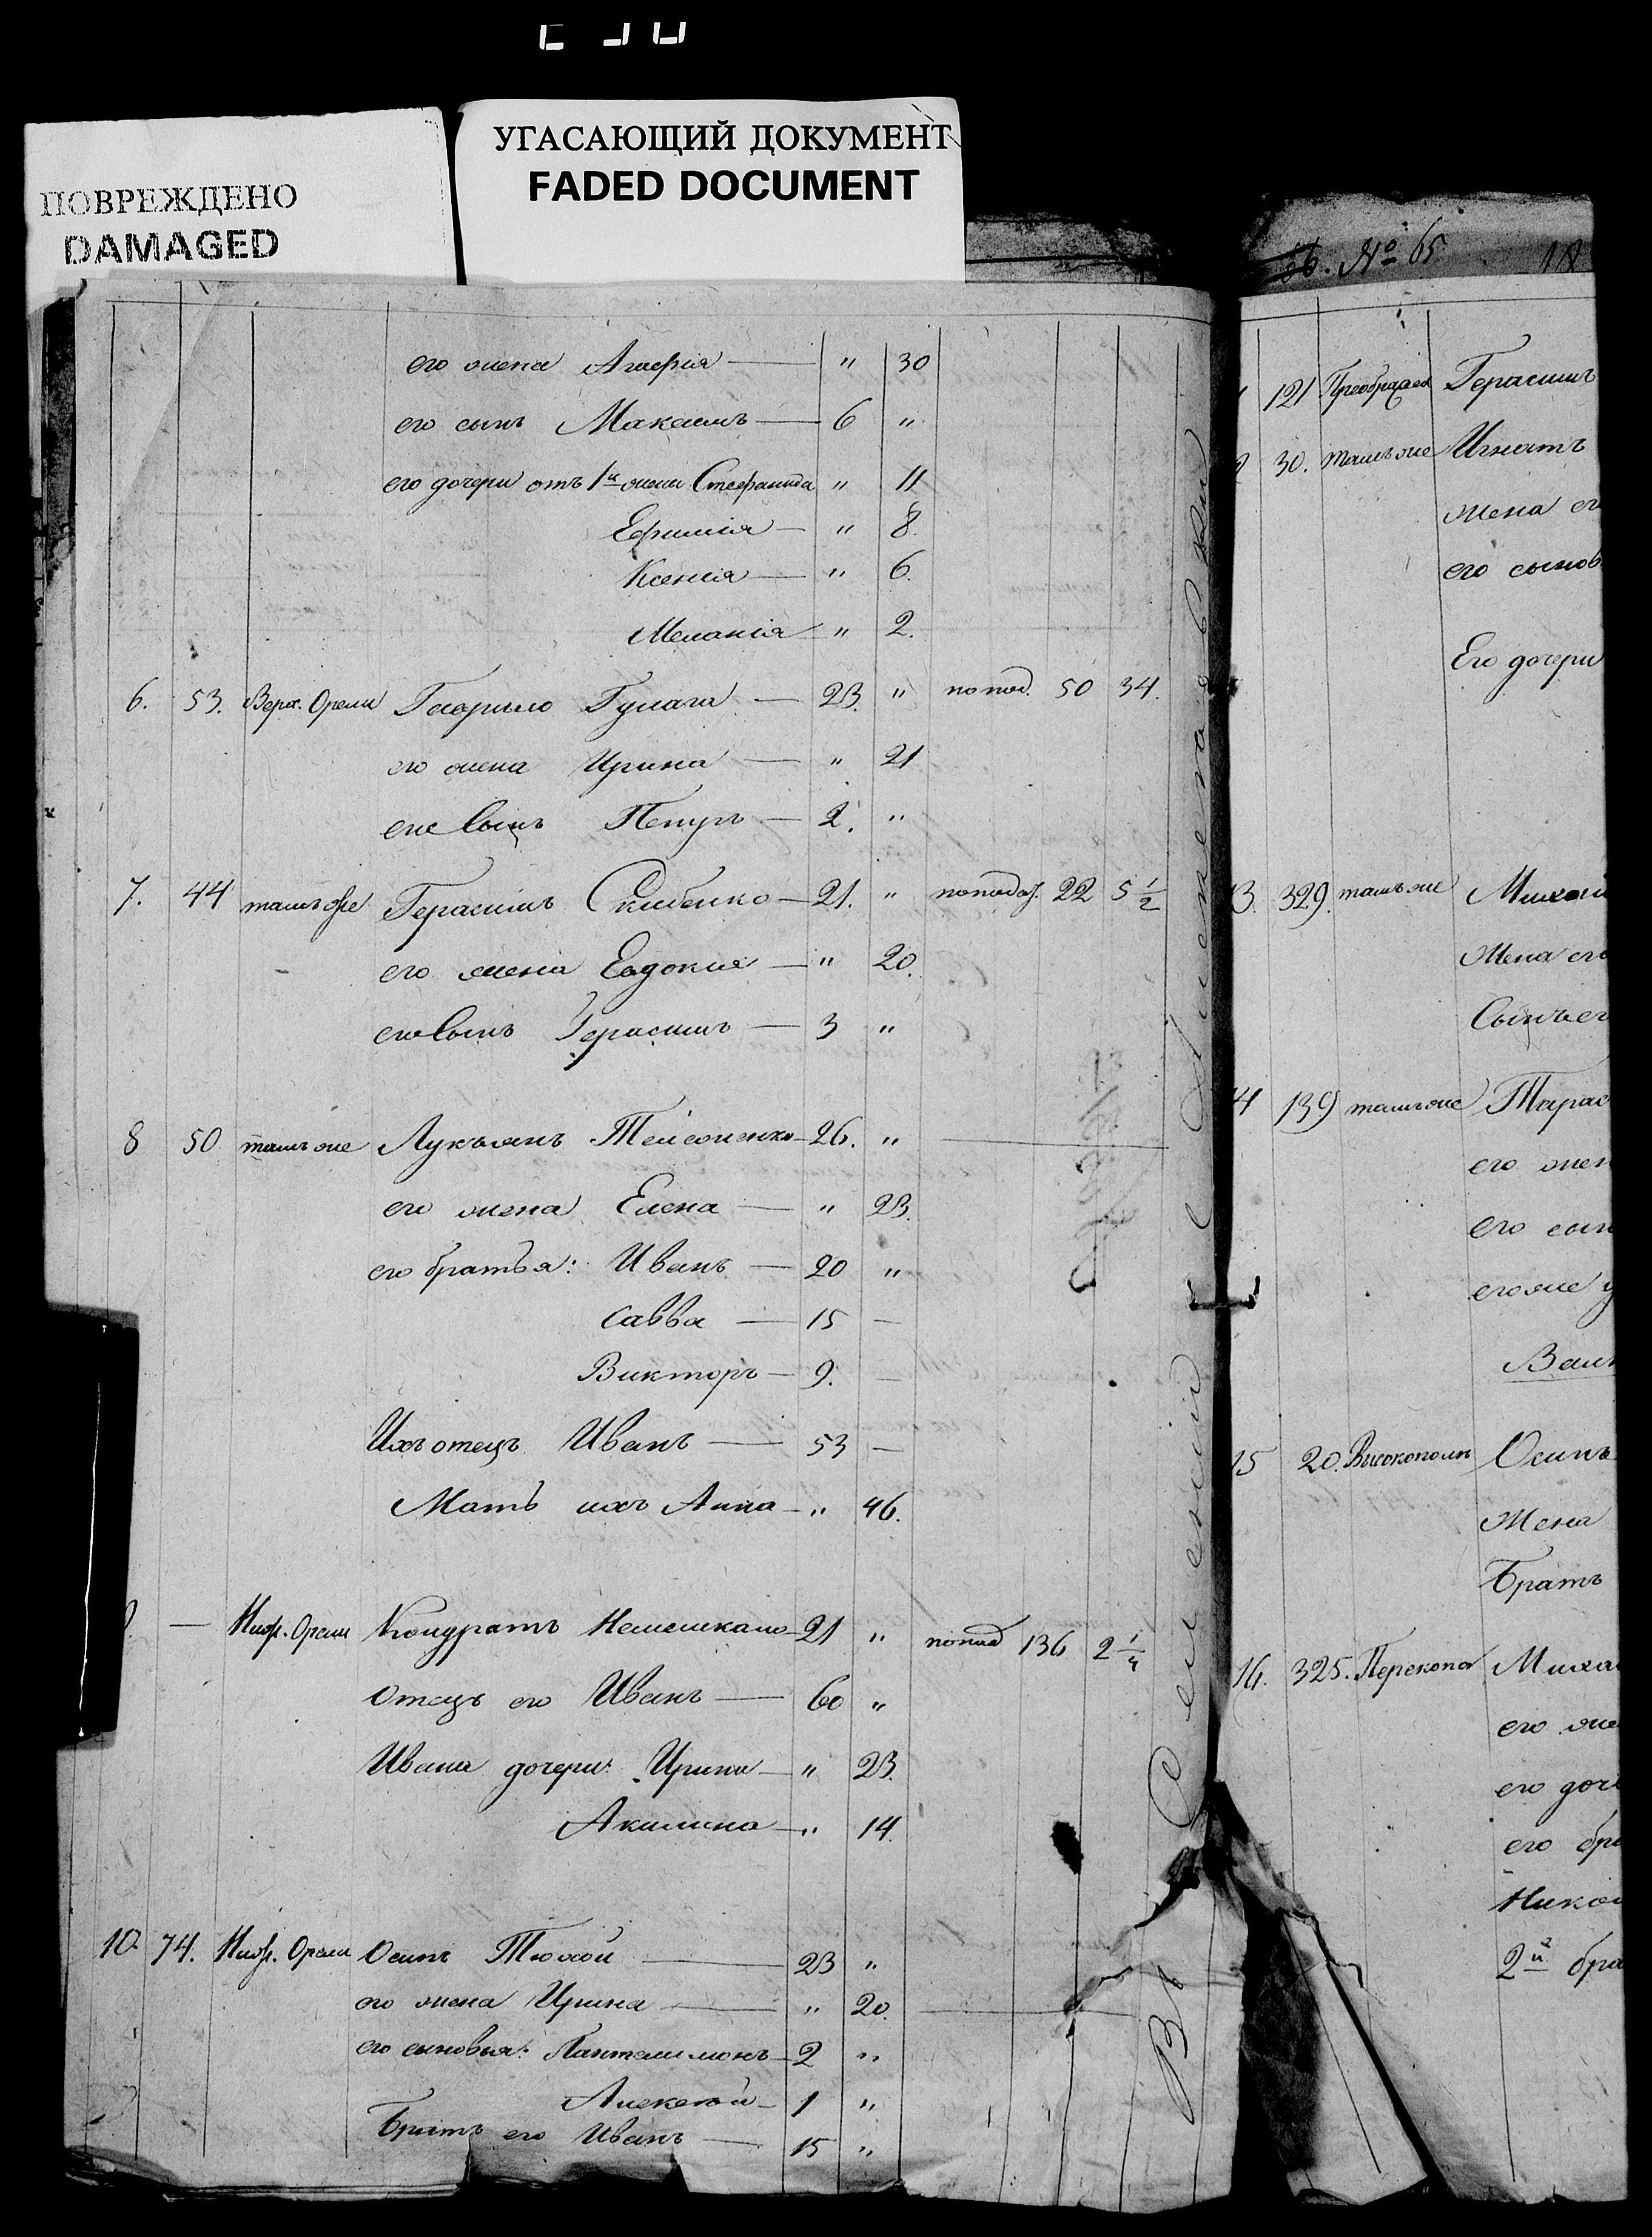 УГАСАЮЩИЙ ДОКУМЕНТ
FADED DOCUMENT
ПОВРЕЖДЕНО
DAMAGED
его жена Агафия — " 30
его сынъ Максимъ — 6 "
его дочери отъ 1й жены Стефанида " 11
Ефимія — " 8.
Ксенія — " 6.
Меланія " 2.
6. 53. Верх. Орели Гаврило Гулага — 23. " попод. 50 34.
его жена Ирина — " 21
его Сынъ Петръ — 2. "
7. 44 тамъ же Герасимъ — 21. " 22 5 1/2
его жена Евдокия — " 20.
его Сынъ Герасимъ — 3 "
8 50 тамъ же Лукьянъ 26. "
его жена Елена — " 23.
его братья: Иванъ — 20 "
Савва — 15 —
Викторъ — 9. —
Ихъ отецъ Иванъ — 53 —
Мать ихъ Анна — " 46.
— Ниж. Орели Кондратъ 21 " попод 136 2 1/4
Отецъ его Иванъ — 60 "
Ивана дочери: Ирина — " 23.
Акилина — " 14.
10. 74. Ниж. Орели Осипъ Тюхой — 23 "
его жена Ирина — " 20.
его сыновья: Пантелимонъ — 2 "
Алексей — 1 "
Братъ его Иванъ — 15 "
Въ Селеній
№ 65 18
121 Герасимъ
30. тамъ же Игнатъ
жена ег
его сынов
Его дочери
13. 329. тамъ же Михай
Жена его
Сынъ ег
14 139 тамъ же Тарас
его жен
его сын
его же
15 20. Високополя Осипъ
Жена
Братъ
16. 325. Перекопа Миха
его же
его доч
его бра
Никол
2й бра